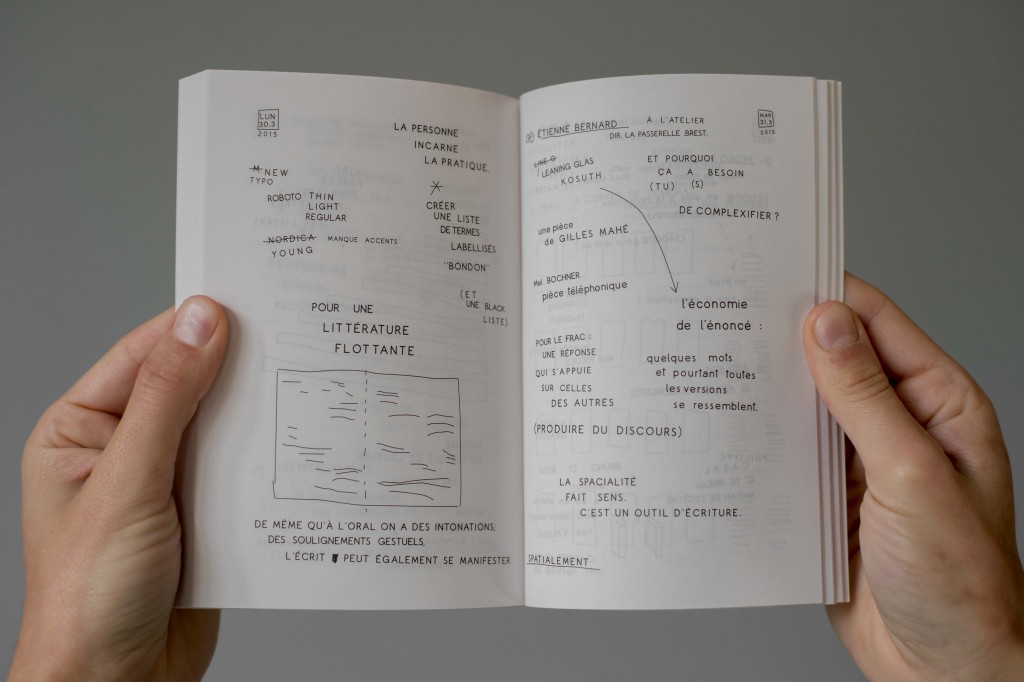 LUN
30.3
2015
LA PERSONNE
INCARNE
LA PRATIQUE.
M NEW
TYPO
ROBOTO THIN
LIGHT
REGULAR
NORDICA MANQUE ACCENTS
YOUNG
CRÉER
UNE LISTE
DE TERMES
LABELLISÉS
"BONDON"
(ET
UNE BLACK
LISTE)
POUR UNE
LITTÉRATURE
FLOTTANTE
DE MÊME QU'À L'ORAL ON A DES INTONATIONS,
DES SOULIGNEMENTS GESTUELS,
L'ÉCRIT PEUT ÉGALEMENT SE MANIFESTER
ÉTIENNE BERNARD
À L'ATELIER
DIR. LA PASSERELLE BREST.
MAR
31.3
2015
LEANING GLAS
KOSUTH
ET POURQUOI
ÇA A BESOIN
(TU) (S)
DE COMPLEXIFIER ?
une pièce
de GILLES MAHÉ
Mel BOCHNER
pièce téléphonique
l'économie
de l'énoncé :
POUR LE FRAC :
UNE RÉPONSE
QUI S'APPUIE
SUR CELLES
DES AUTRES
quelques mots
et pourtant toutes
les versions
se ressemblent.
(PRODUIRE DU DISCOURS)
LA SPACIALITÉ
FAIT SENS.
C'EST UN OUTIL D'ÉCRITURE.
SPATIALEMENT